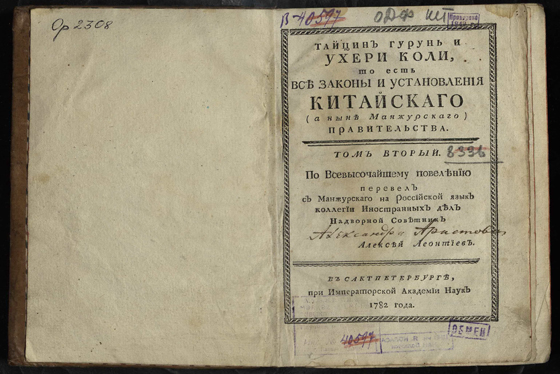 Ор 2308
В-40597
ОДФ
ТАЙЦИНЪ ГУРУНЬ И
УХЕРИ КОЛИ,
то есть
ВСѢ ЗАКОНЫ И УСТАНОВЛЕНІЯ
КИТАЙСКАГО
(а нынѣ Манжурскаго)
ПРАВИТЕЛЬСТВА.
ТОМЪ ВТОРЫЙ.
8336
По Всевысочайшему повелѣнію
перевелъ
съ Манжурскаго на Россійской языкъ
коллегіи Иностранныхъ дѣлъ
Надворной Совѣтникъ
Алексѣй Леонтіевъ.
ВЪ САНКТПЕТЕРБУРГѢ,
при Императорской Академіи Наукъ
1782 года.
40597
ОБМЕН